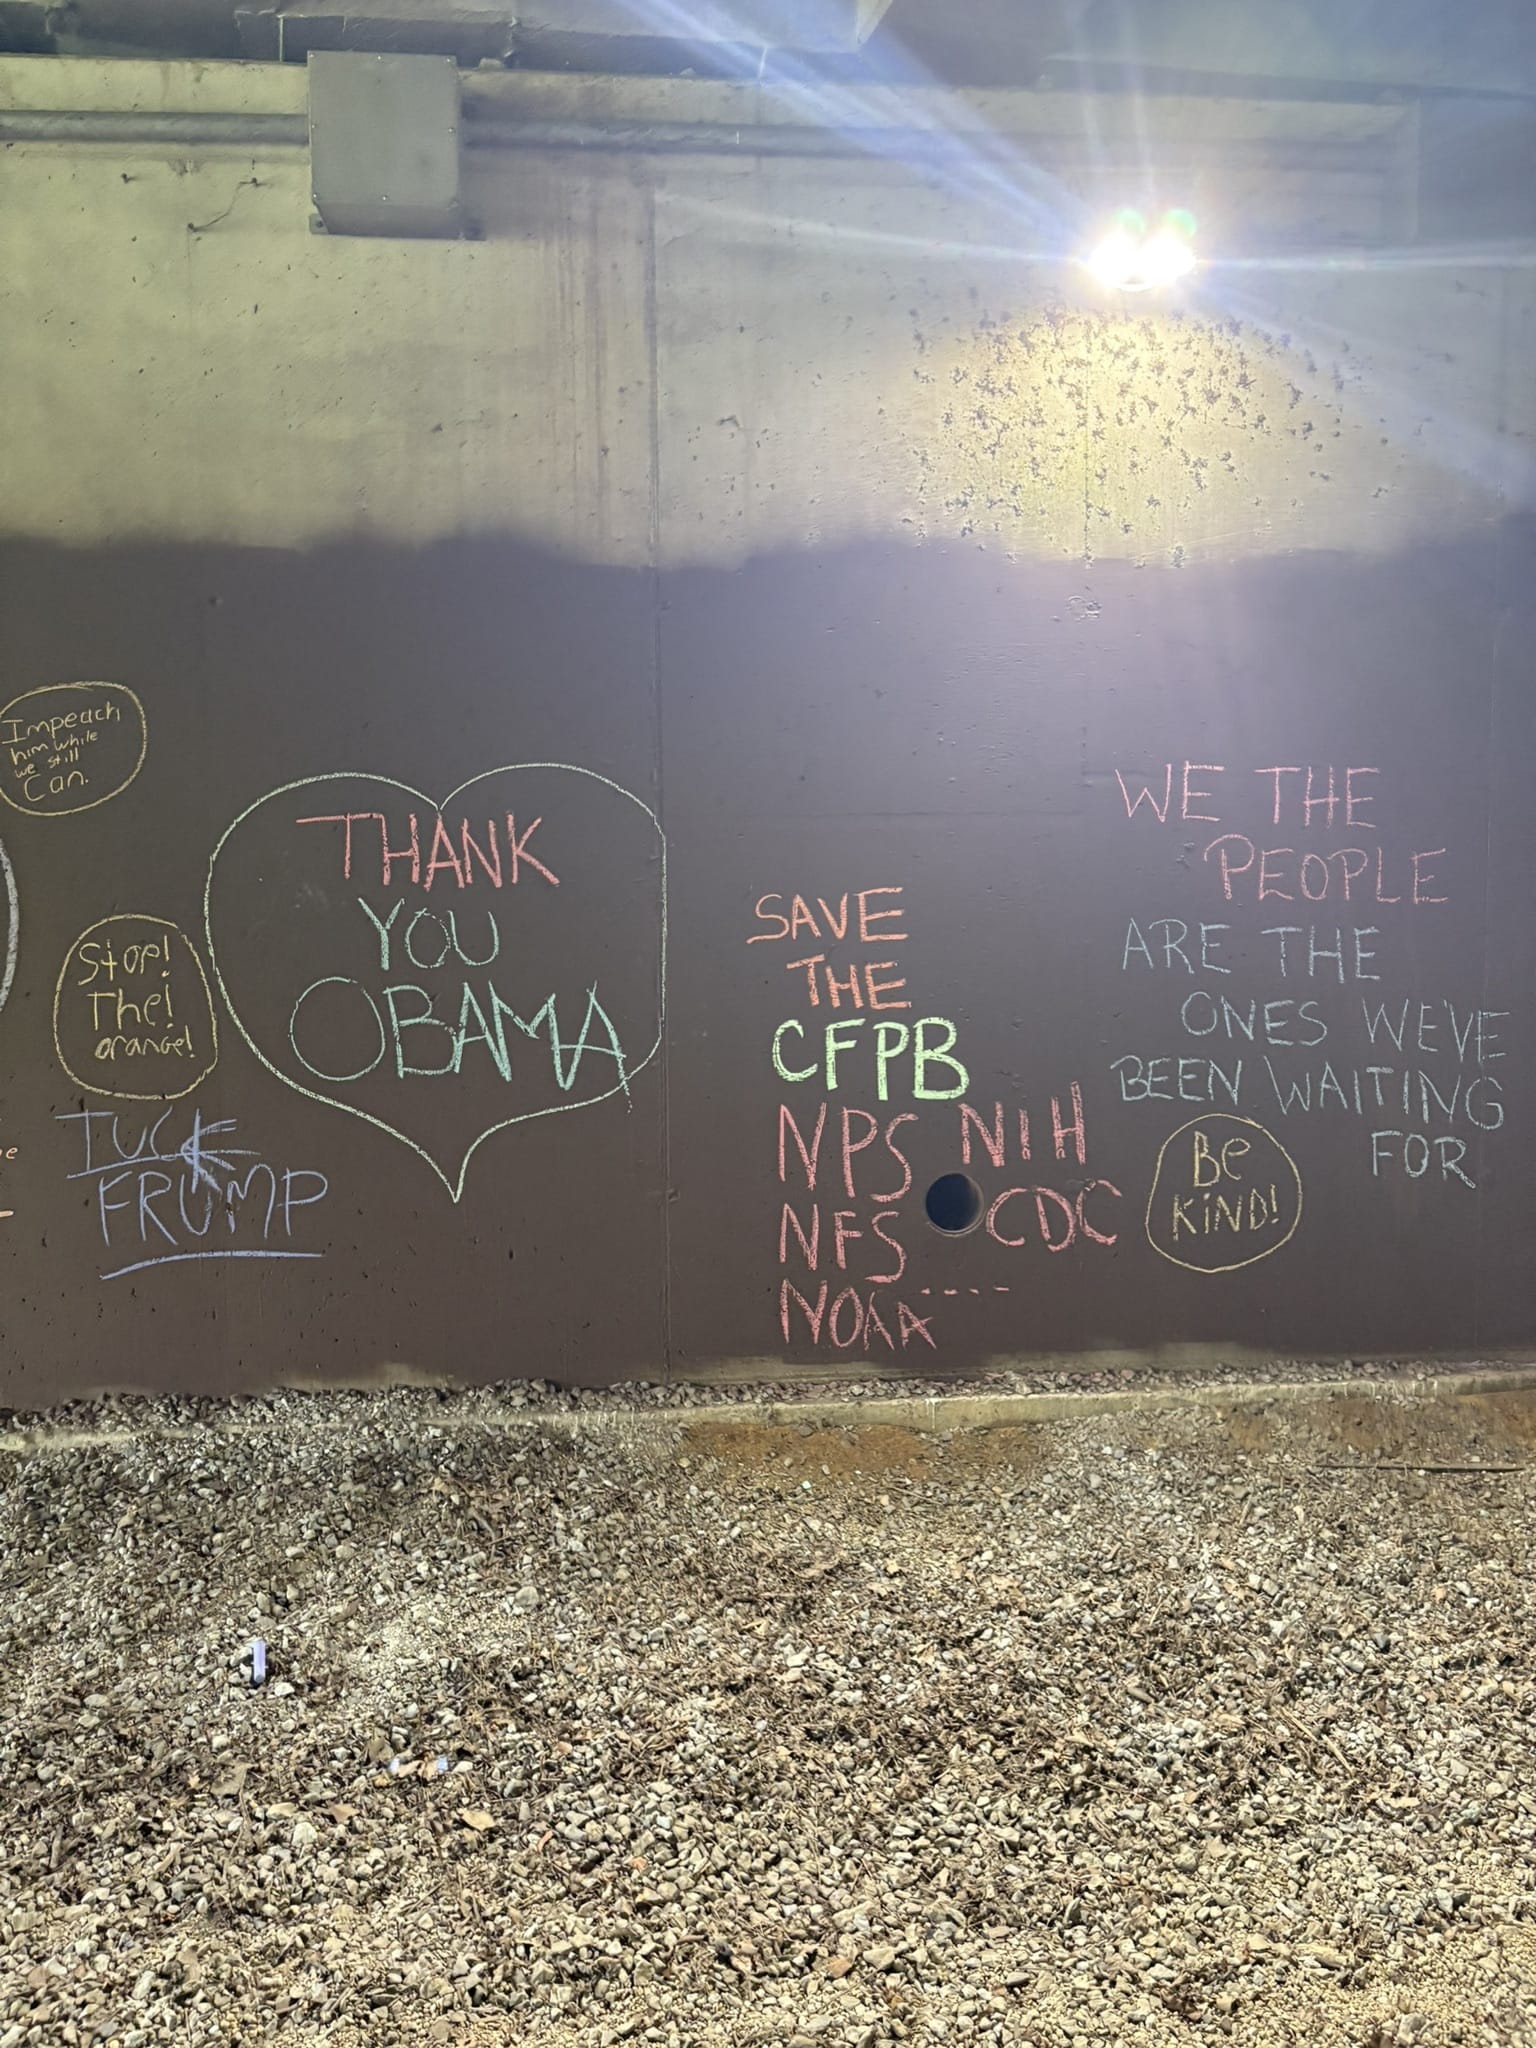 Impeach
him while
we still
Can.
Stop!
The!
orange!
TUCK
FRUMP
THANK
YOU
OBAMA
SAVE
THE
CFPB
NPS NIH
NFS CDC
NOAA ....
WE THE
PEOPLE
ARE THE
ONES WE'VE
BEEN WAITING
FOR
Be
KiND!